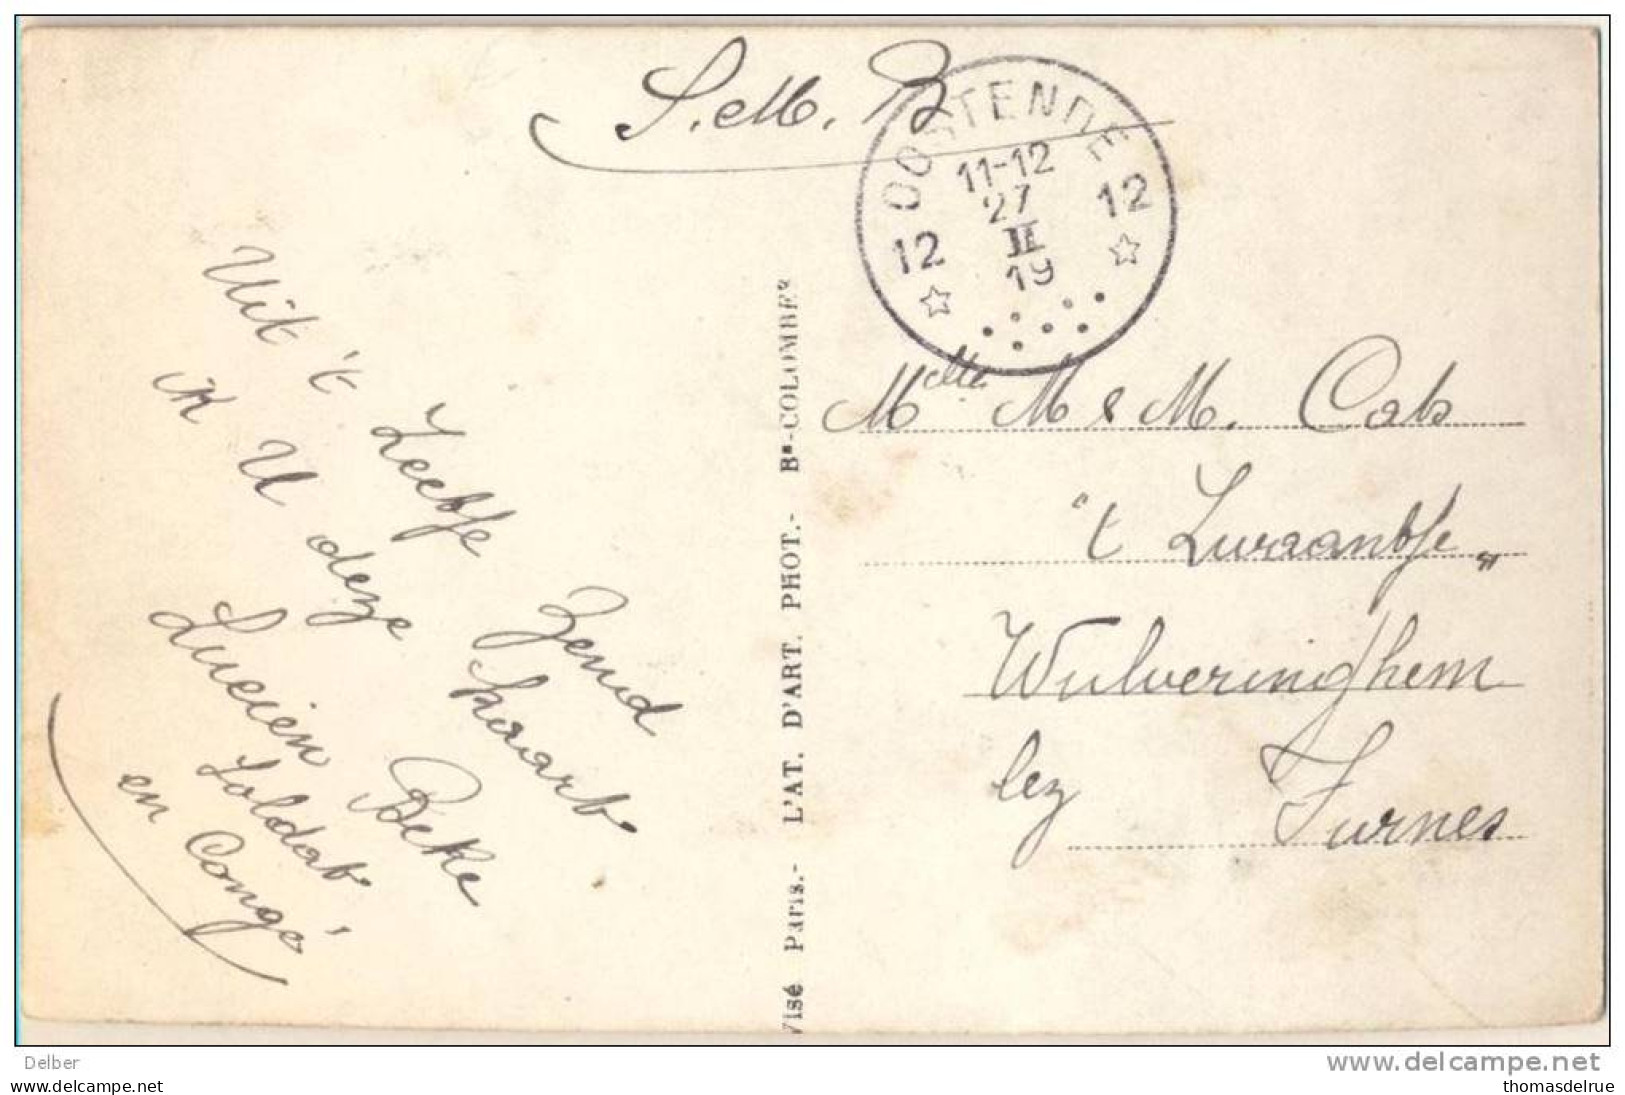 S.M. B
OOSTENDE
11-12
27
12 II 12
19
Uit 't Zeetje Zend
ik U deze kaart
Lucien Beke
Soldat
en Congé
Visé Paris.- L'AT. D'ART. PHOT.- Bs-COLOMBES
Melle M & M. Cals
't Zwaantje"
Wulveringhem
lez Furnes
Delber
www.delcampe.net
oorlog-kaarten.com
thomasdelrue